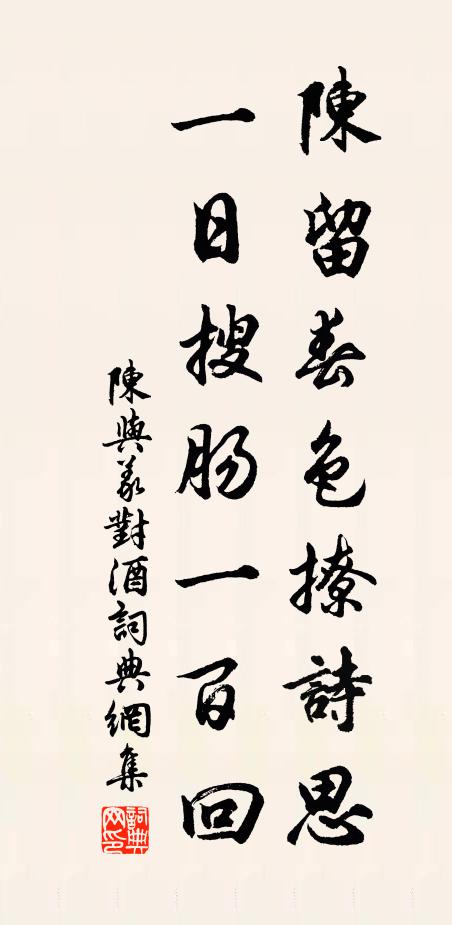 陳留春色撩詩思
一日搜腸一百回
陳與義對酒詞典網集
詞典網印